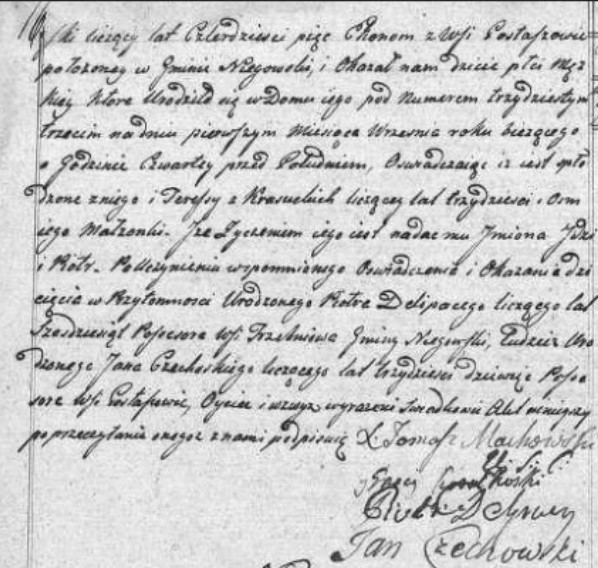 ski liczący lat Czterdzieści pięć Ekonom z Wsi Postaszowic
położoney w Gminie Niegowskiej, i Okazał nam dziecie płci męz
kiey które Urodziło się w Domu iego pod Numerem trzydziestym
trzecim na dniu pierwszym Miesiąca Września roku bieżącego
o Godzinie Czwartey przed Południem, Oswiadczaiąc iż iest spło
dzone z niego i Teressy z Krasuckich liczącey lat trzydzieści Osm
iego Małżonki. Iże Życzeniem iego iest nadac mu Imiona Idzi
i Piotr. Po Uczynieniu wspomnionego Oswiadczenia i Okazania dzi
cięcia w Przytomnosci Urodzonego Piotra Delipacego liczącego lat
Szesdziesiąt Possesora Wsi Trzebniowa Gminy Niegowski, Tudzież Uro
dzonego Jana Czechoskiego liczącego lat trzydzieści dziewięć Posse
sora Wsi Postaszowic, Oyciec i wzwyz wyrażeni Swiadkowie Akt ninieyszy
po przeczytaniu onegoż z nami podpisuią X. Tomasz Machowski
Piotr
Jan Czechowski